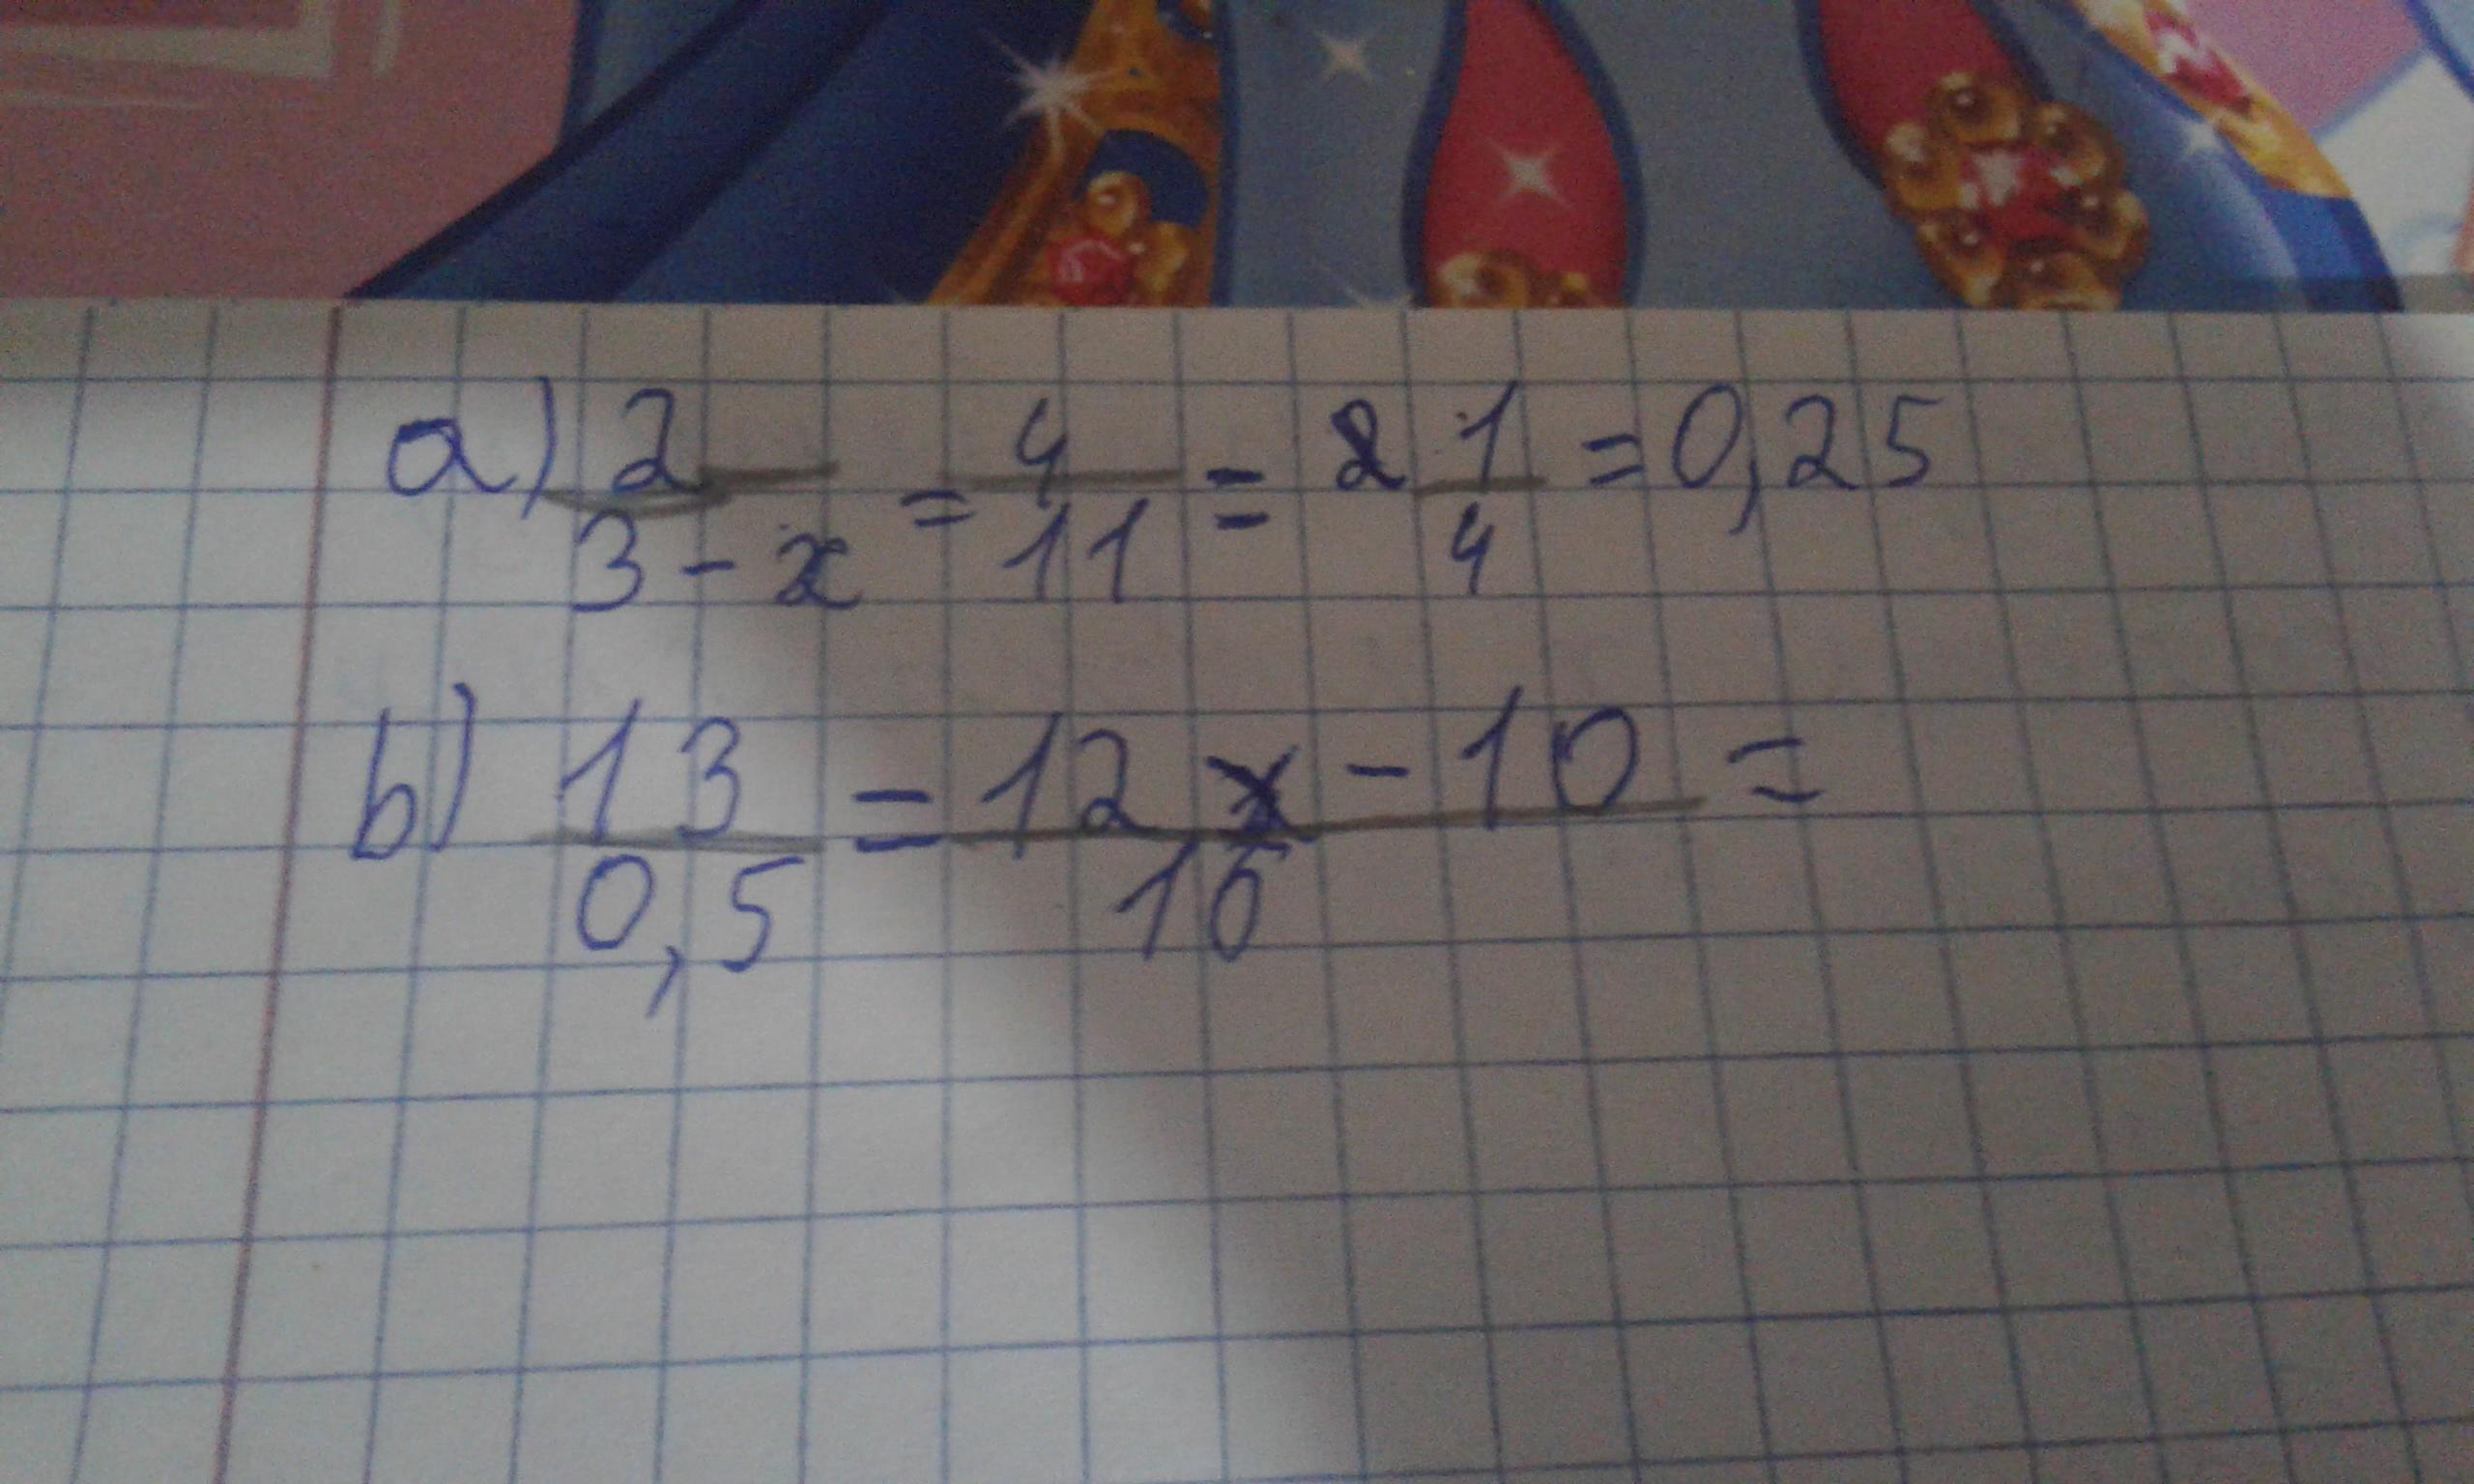 a) 2/(3-x) = 4/11 = 2 1/4 = 0,25
b) 13/0,5 = (12x-10)/16 =